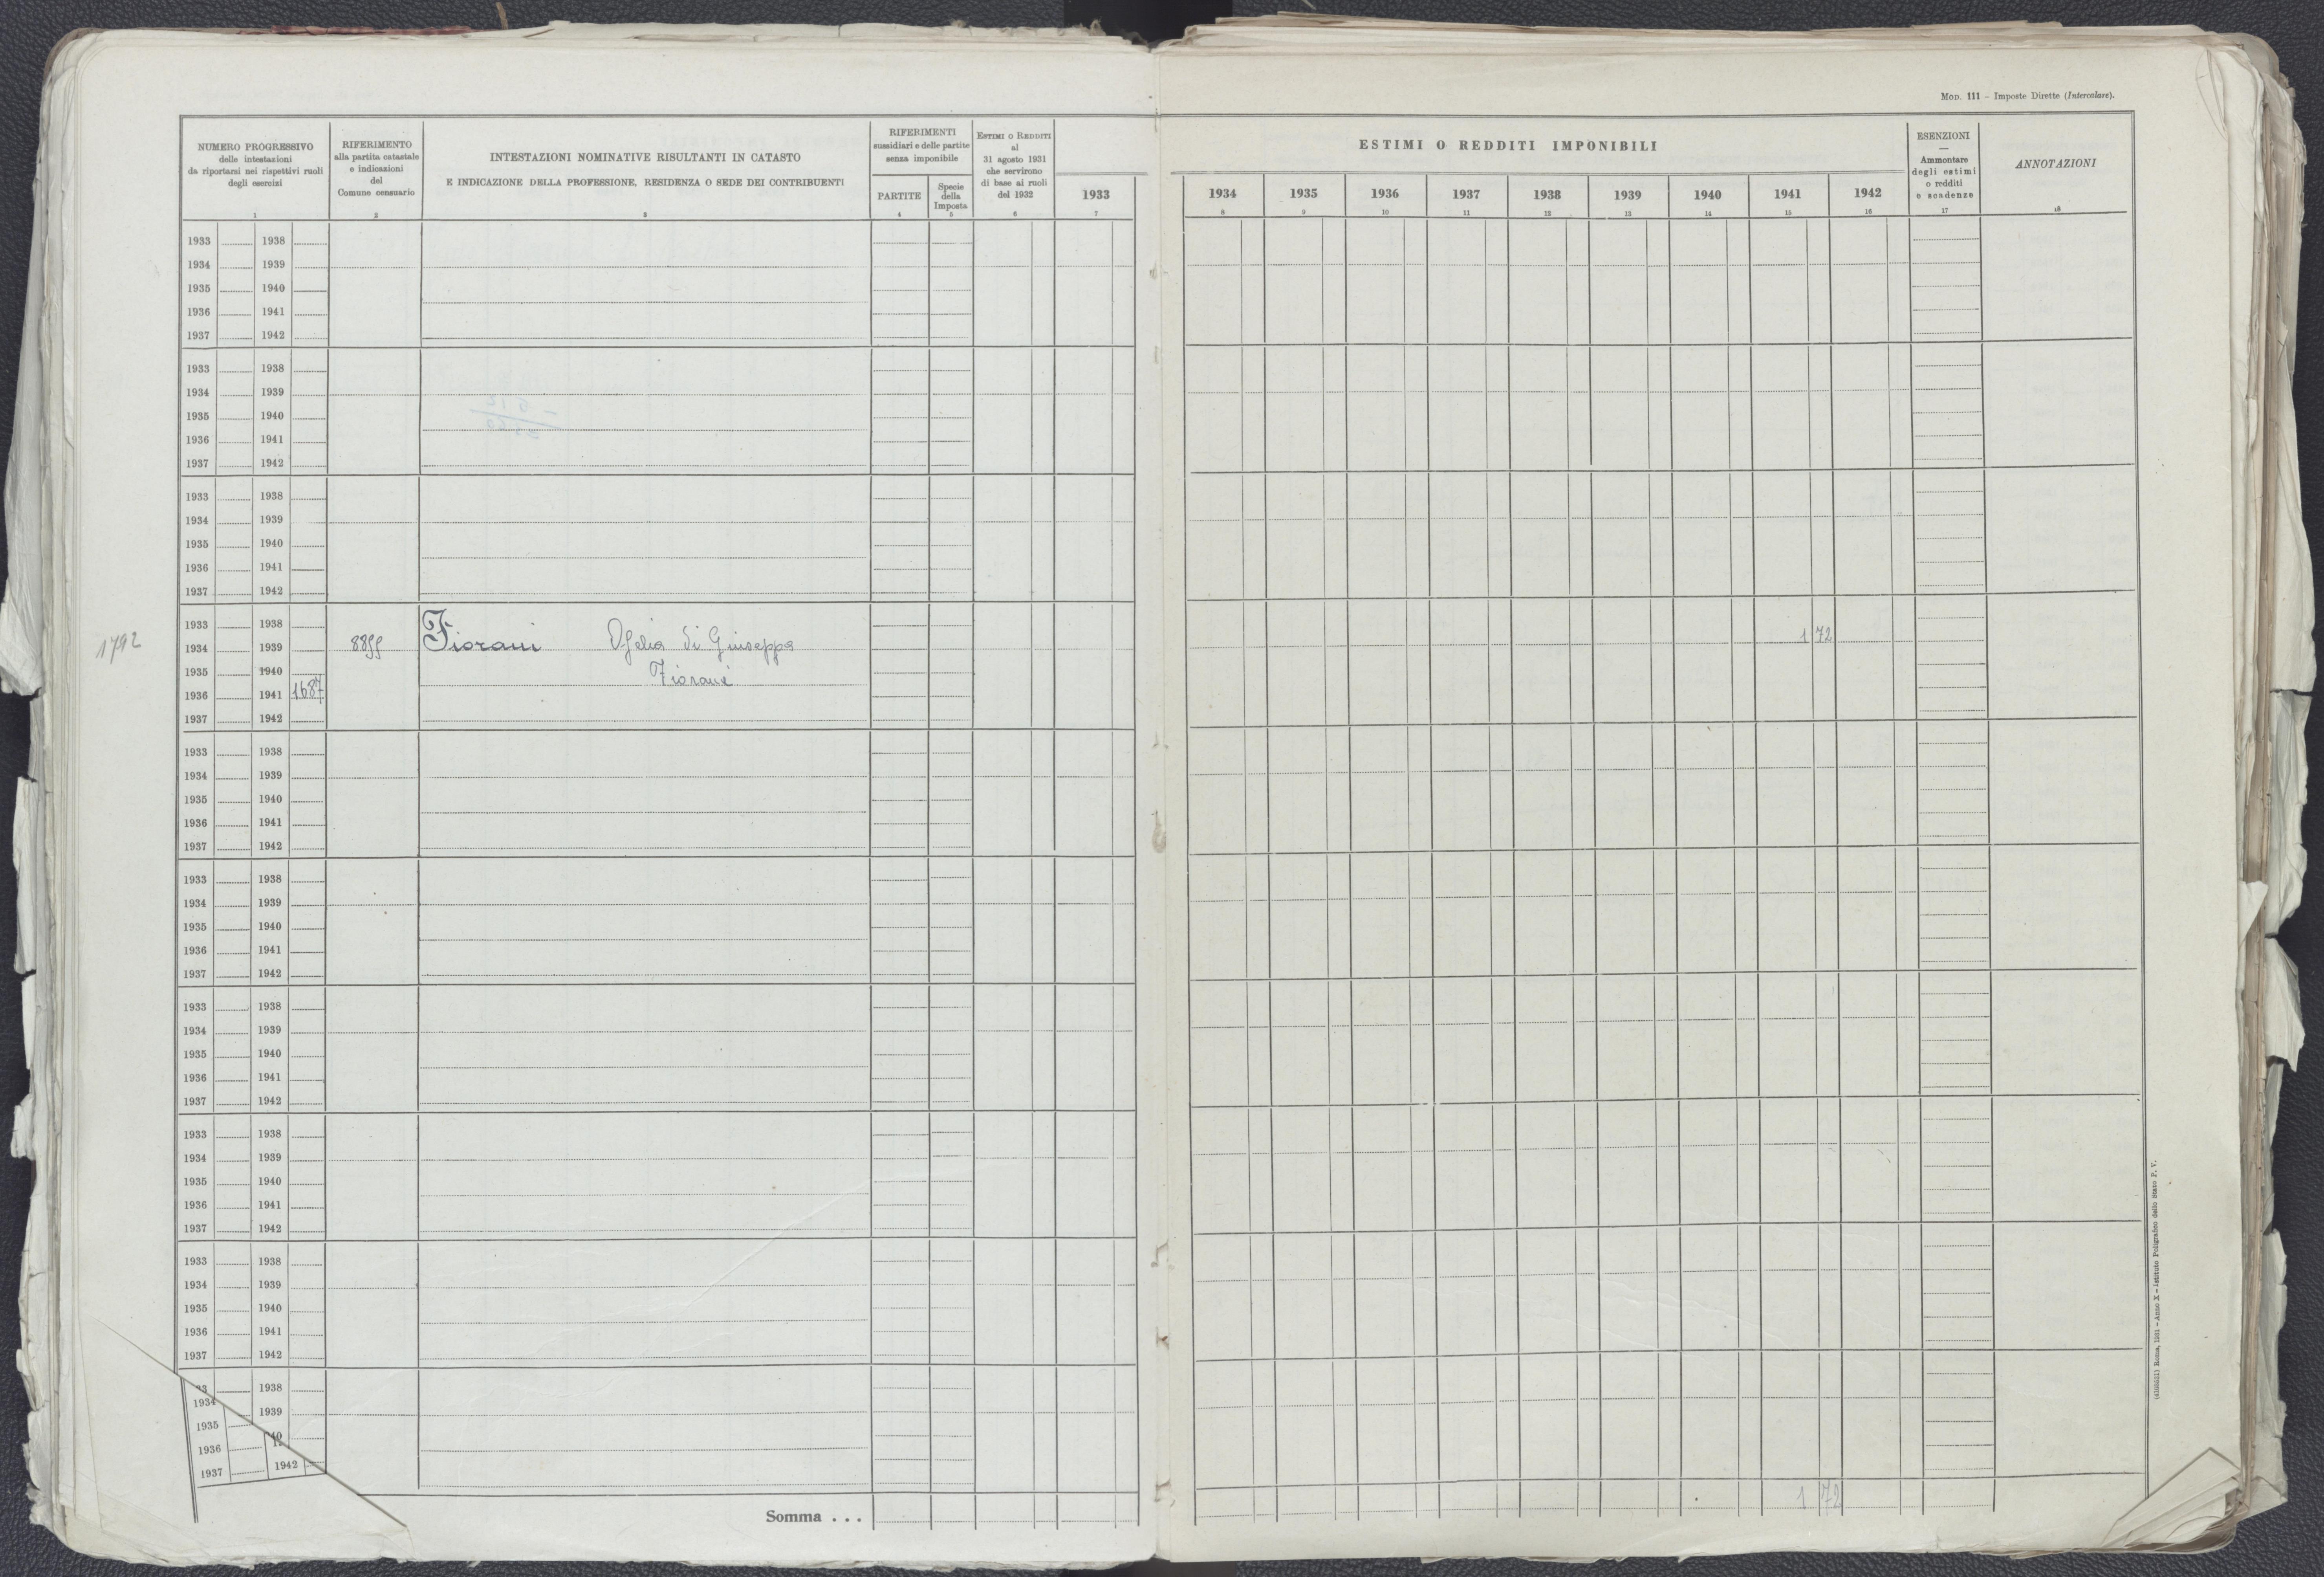 MOD. 111 - Imposte Dirette (Intercalare).
NUMERO PROGRESSIVO
delle intestazioni
da riportarsi nei rispettivi ruoli
degli esercizi
1
RIFERIMENTO
alla partita catastale
e indicazioni
del
Comune censuario
2
INTESTAZIONI NOMINATIVE RISULTANTI IN CATASTO
E INDICAZIONE DELLA PROFESSIONE, RESIDENZA O SEDE DEI CONTRIBUENTI
3
RIFERIMENTI
sussidiari e delle partite
senza imponibile
PARTITE
4
Specie
della
Imposta
5
ESTIMI O REDDITI
al
31 agosto 1931
che servirono
di base ai ruoli
del 1932
6
ESTIMI O REDDITI IMPONIBILI
1933 1934 1935 1936 1937 1938 1939 1940 1941 1942
7 8 9 10 11 12 13 14 15 16
ESENZIONI
—
Ammontare
degli estimi
o redditi
e scadenze
17
ANNOTAZIONI
18
1933 1938
1934 1939
1935 1940
1936 1941
1937 1942
1933 1938
1934 1939
1935 1940
1936 1941
1937 1942
1933 1938
1934 1939
1935 1940
1936 1941
1937 1942
1933 1938
1792 1934 1939 Fiorani Ofelia di Giuseppa 1 72
1935 1940 Fiorani
1936 1941 1687
1937 1942
1933 1938
1934 1939
1935 1940
1936 1941
1937 1942
1933 1938
1934 1939
1935 1940
1936 1941
1937 1942
1933 1938
1934 1939
1935 1940
1936 1941
1937 1942
1933 1938
1934 1939
1935 1940
1936 1941
1937 1942
1933 1938
1934 1939
1935 1940
1936 1941
1937 1942
33 1938
1934 1939
1935 40
1936
1937 1942
Somma . . . 1 72
Roma, 1931 - Anno X - Istituto Poligrafico dello Stato P. V.